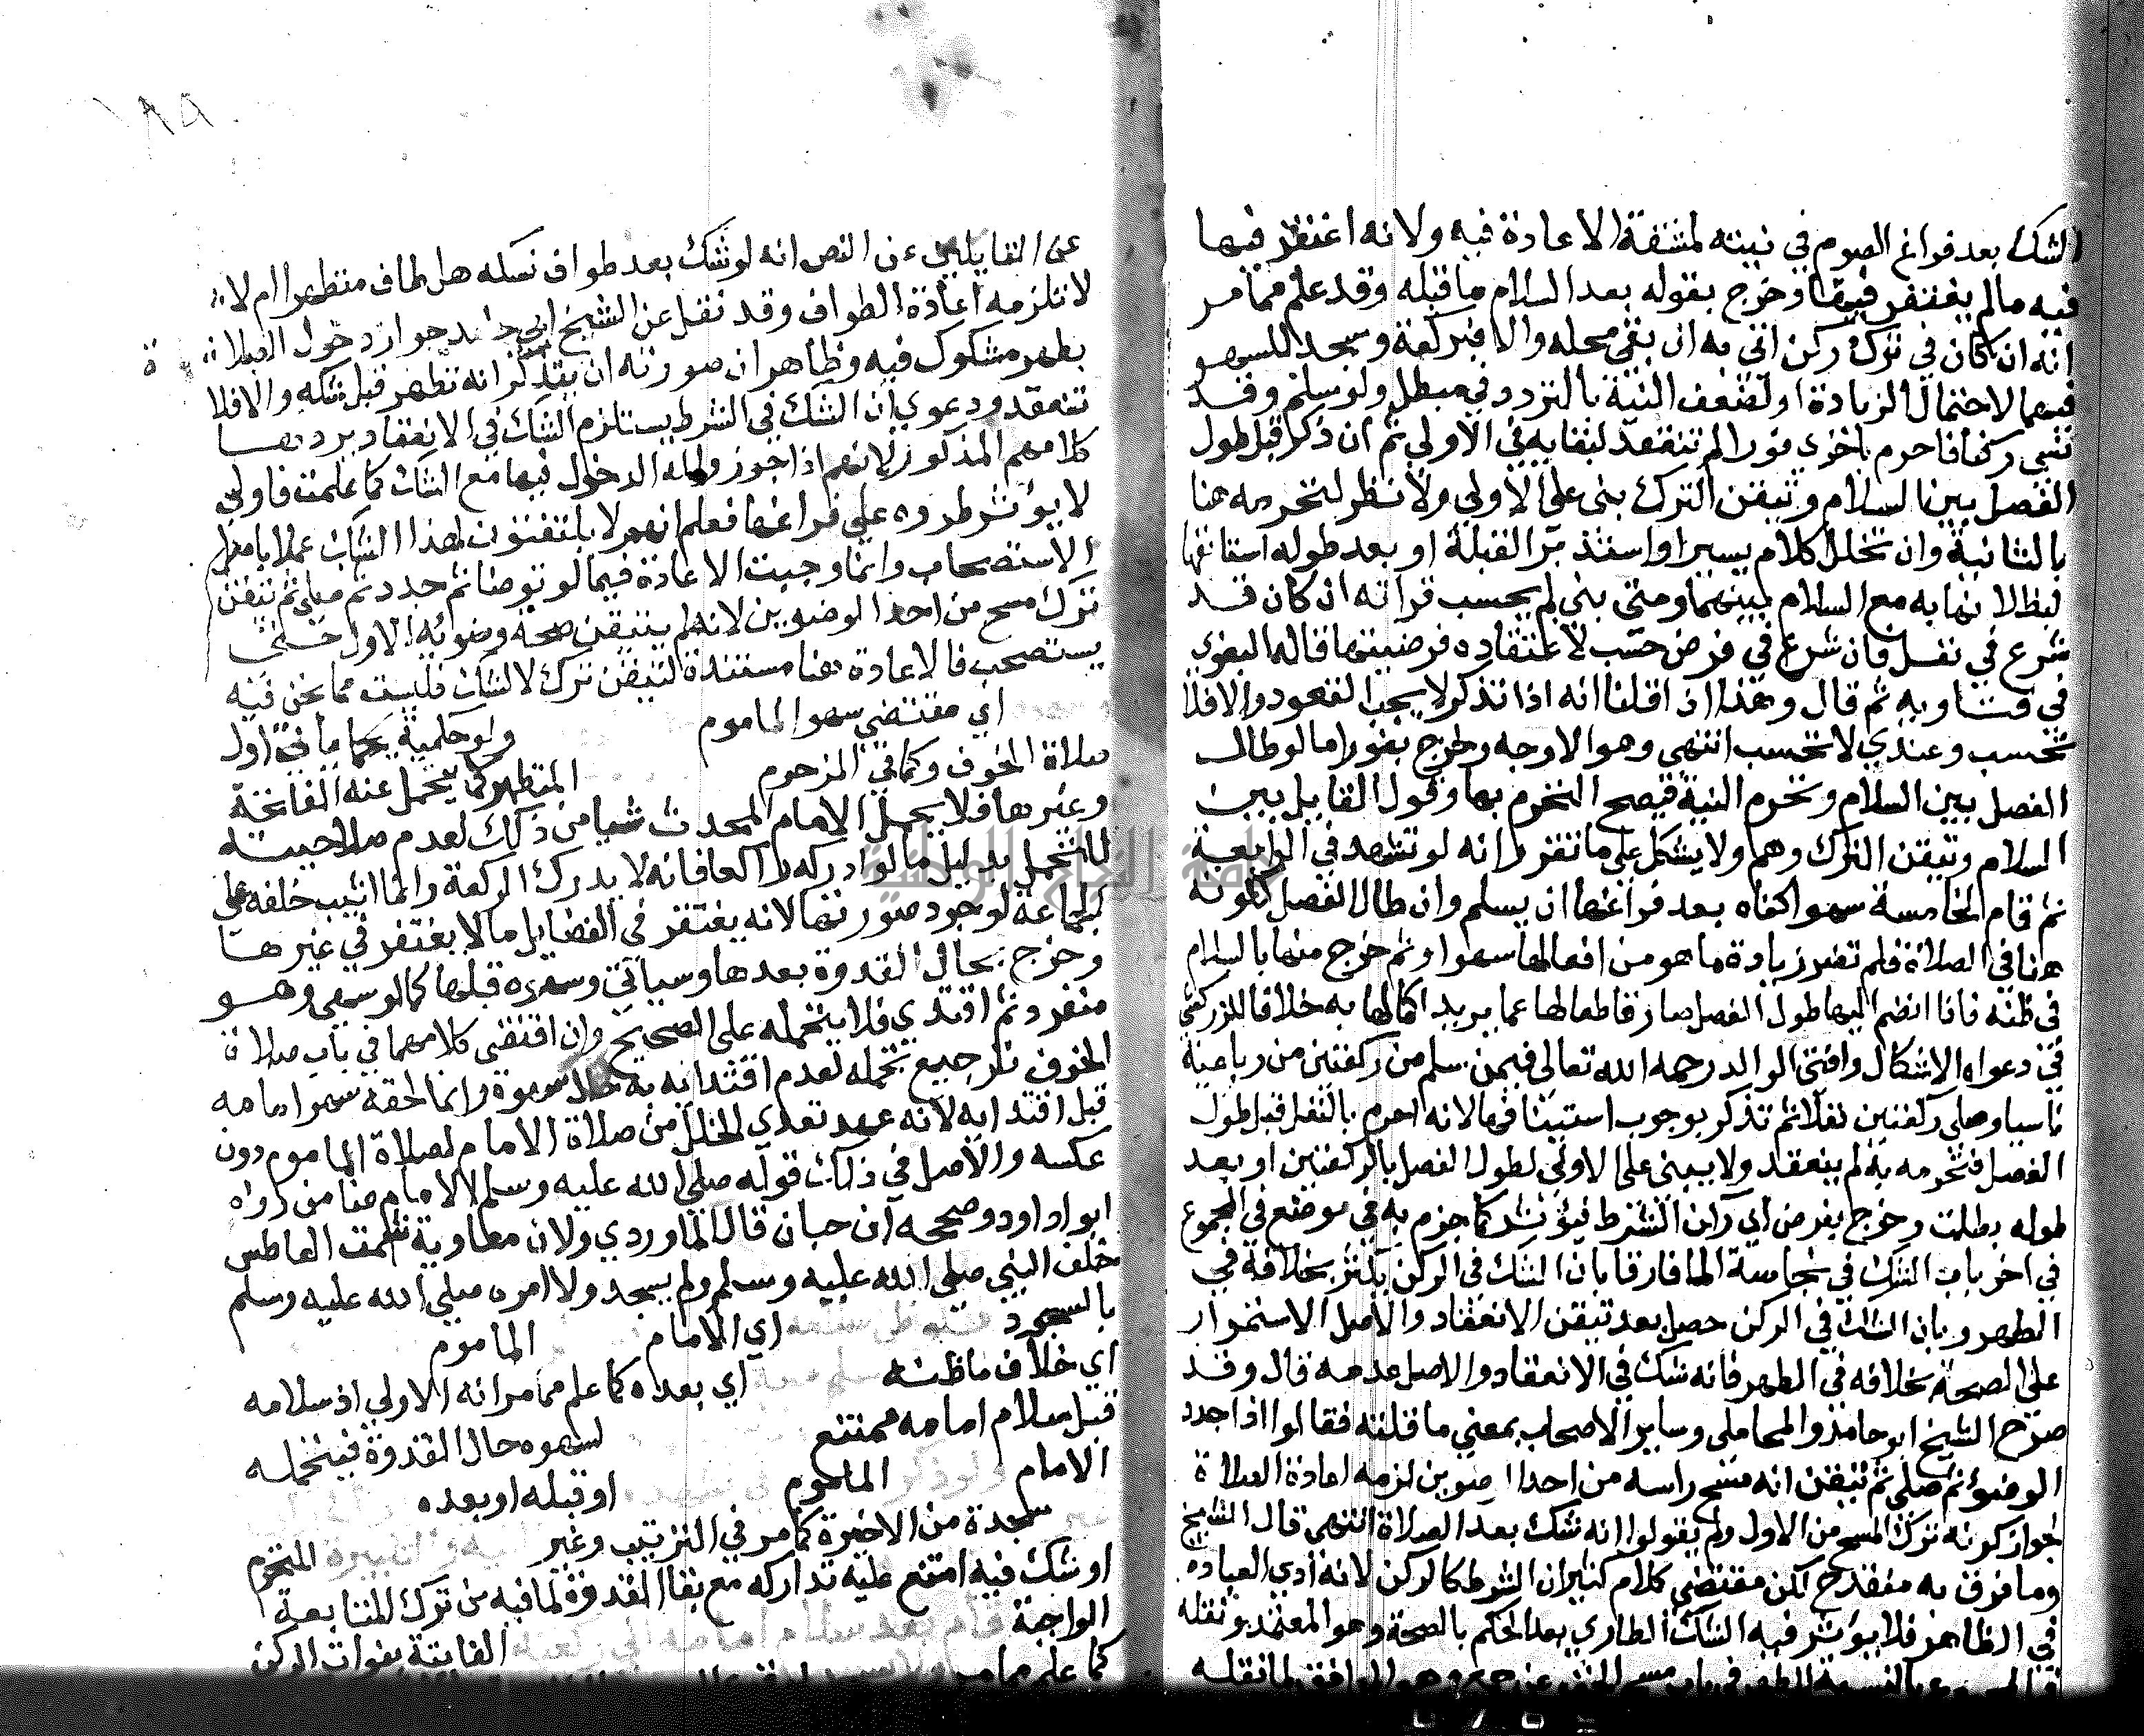 الشك بعد فراغ الصوم في نيته لمشقة الاعادة فيه ولانه اغتفر فيها
فيه مالم يغتفر فيها وخرج بقوله بعد السلام ما قبله وقد علم مما مر
انه ان كان في ترك ركن اتي به ان بقي محله والا فبركعة وسجد للسهو
فيهما لاحتمال الزيادة او لضعف النية بالتردد في مبطل ولو سلم وقد
نسي ركنا فاحرم باخري فورا لم تنعقد لبقايه في الاولي ثم ان ذكر قبل طول
الفصل بين السلام وتيقن الترك بني علي الاولي ولا نظر لتحرمه هنا
بالثانية وان تخلل كلام يسير او استدبر القبلة او بعد طوله استانفها
لبطلانها به مع السلام بينهما ومتي بني لم يحسب قراته ان كان قد
شرع في نفل فان شرع في فرض حسب لاعتقاده فرضيتها قاله البغوي
في فتاويه ثم قال وهذا اذا قلنا انه اذا تذكر لا يجب القعود والا فلا
تحسب وعندي لا تحسب انتهي وهو الاوجه وخرج بفورا ما لو طال
الفصل بين السلام وتحرم النية فيصح التحرم بها وقول القايل بين
السلام وتيقن الترك وهم ولا يشكل علي ما تقرر انه لو تشهد في الرابعة
ثم قام لخامسة سهوا كفاه بعد فراغها ان يسلم وان طال الفصل لكونه
هنا في الصلاة فلم تضر زيادة ما هو من افعالها سهوا وثم خرج منها بالسلام
في ظنه فاذا انضم اليها طول الفصل صار قاطعا لها عما يريد اكمالها به خلافا للزركشي
في دعواه الاشكال وافتي الوالد رحمه الله تعالي فيمن سلم من ركعتين من رباعية
ناسيا وصلي ركعتين نفلا ثم تذكر بوجوب استينافها لانه احرم بالنفل قبل طول
الفصل فتحرمه به لم ينعقد ولا يبني علي الاولي لطول الفصل بالركعتين او بعد
طوله بطلت وخرج بفرض اي ركن الشرط فيؤثر كما جزم به في موضع في المجموع
في اخر باب الشك في نجاسة الما فارقا بان الشك في الركن يكثر بخلافه في
الطهر وبان الشك في الركن حصل بعد تيقن الانعقاد والاصل الاستمرار
علي الصحة بخلافه في الطهر فانه شك في الانعقاد والاصل عدمه قال وقد
صرح الشيخ ابو حامد والمحاملي وساير الاصحاب بمعني ما قلته فقالوا اذا جدد
الوضوء ثم صلي ثم تيقن انه مسح راسه من احد الوضوين لزمه اعادة الصلاة
لجواز كونه ترك المسح من الاول ولم يقولوا انه شك بعد الصلاة انتهي قال الشيخ
وما فرق به منقدح لكن مقتضي كلام كثير ان الشرط كالركن لانه ادي العبادة
في الظاهر فلا يؤثر فيه الشك الطاري بعد الحكم بالصحة وهو المعتمد ونقله
في المجموع بالنسبة للطهر في باب مسح الخف عن جمع وهو الموافق لما نقله
عن القايلين عن النص انه لو شك بعد طواف نسكه هل طاف متطهرا ام لا
لا تلزمه اعادة الطواف وقد نقل عن الشيخ ابي حامد جواز دخول الصلاة
بطهر مشكوك فيه وظاهر ان صورته ان يتذكر انه تطهر قبل شكه والا فلا
تنعقد ودعوي ان الشك في الشرط يستلزم الشك في الانعقاد يردها
كلامهم المذكور لانهم اذا جوزوا له الدخول فيها مع الشك كما علمت فاولي
لا يؤثر طروه علي فراغها فعلم انهم لا يلتفتون لهذا الشك عملا باصل
الاستصحاب وانما وجبت الاعادة فيما لو توضا ثم جدد ثم صلي ثم تيقن
ترك مسح من احد الوضوين لانه لم يتيقن صحة وضوئه الاول حتي
يستصحب فالاعادة هنا مستندة لتيقن ترك لا لشك فليست مما نحن فيه
اي مقتضي سهو الماموم
صلاة الخوف وكما في المزحوم ولو حكمية كما ياتي اول
وغيرها فلا يحمل الامام المحدث شيا من ذلك لعدم صلاحيته المتطهر كما يتحمل عنه الفاتحة
للتحمل بدليل ما لو ادركه راكعا فانه لا يدرك الركعة وانما اثيب خلفه علي
الجماعة لوجود صورتها لانه يغتفر في الفضايل ما لا يغتفر في غيرها
وخرج بحال القدوة بعدها وسياتي وسهوه قبلها كما لو سهي وهو
منفرد ثم اقتدي فلا يتحمله علي الصحيح وان اقتضي كلامهما في باب صلاة
الخوف ترجيع تحمله لعدم اقتدائه به حال سهوه وانما لحقه سهو امامه
قبل اقتدايه لانه عهد تعدي الخلل من صلاة الامام لصلاة الماموم دون
عكسه والاصل في ذلك قوله صلي الله عليه وسلم الامام ضامن رواه
ابو داود وصححه ابن حبان قال الماوردي ولان معاوية شمت العاطس
خلف النبي صلي الله عليه وسلم ولم يسجد ولا امره صلي الله عليه وسلم
بالسجود اي الامام الماموم
اي خلاف ما ظنه اي بعده كما علم مما مر انه الاولي اذ سلامه
قبل سلام امامه ممتنع لسهوه حال القدوة فيتحمله
الامام الماموم او قبله او بعده
سجدة من الاخيرة كما مر في الترتيب وغير المتحرم
او شك فيه امتنع عليه تداركه مع بقا القدوة لما فيه من ترك المتابعة
الواجبة قام بعد سلام امامه الي ركعته الفايتة بفوات الركن
كما علم مما مر